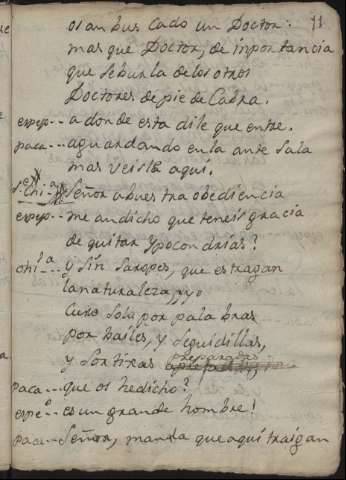 os an bus cado un Doctor. 11
mas que Doctor, de inportancia
que se burla de los otros
Doctores de pie de Cabra.
espep... a donde esta dile que entre.
paca... aguardando en la ante sala
mas veisle aquí.
Señor a bues tra obediencia
espep... me an dicho que teneis gracia
de quitar ypocondrias?
y sin xaropes, que estragan
la naturaleza, y yo
Curo solo por pala bras
por bailes, y seguidillas,
y sortixas preparadas
paca... que os he dicho?
espe o es un grande hombre!
paca... Señor, manda que aquí traigan